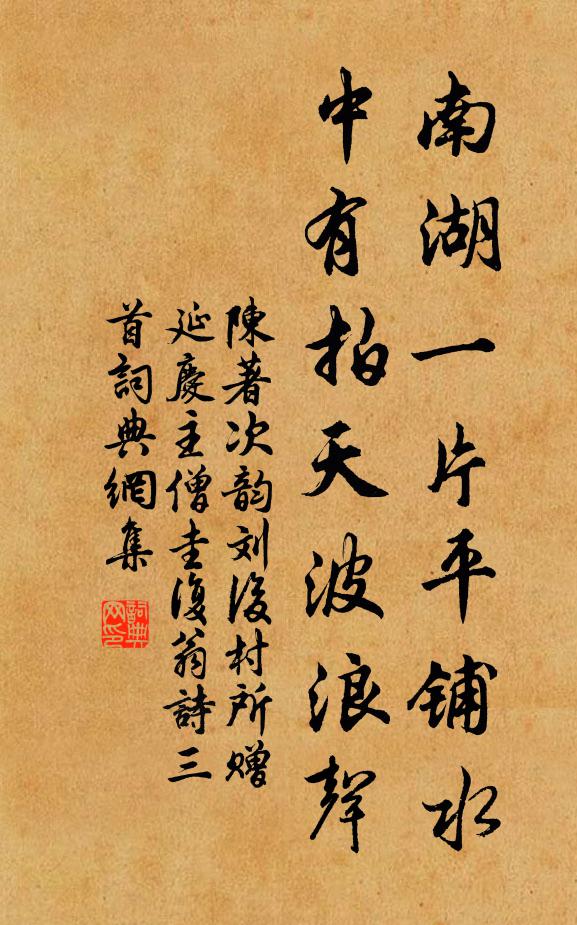 南湖一片平鋪水
中有拍天波浪聲
陳著次韵刘後村所赠
延慶主僧圭復翁詩三
首詞典網集
詞典网印